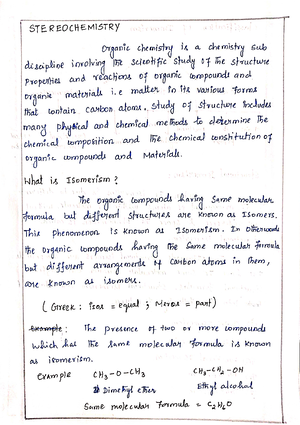 STEREOCHEMISTRY
Organic chemistry is a chemistry sub
discipline involving the scientific study of the structure
properties and reactions of organic compounds and
organic materials i.e matter in its various forms
that contain carbon atoms. Study of structure includes
many physical and chemical methods to determine the
chemical composition and the chemical constitution of
organic compounds and Materials.
What is Isomerism?
The organic compounds having same molecular
formula but different structures are known as Isomers.
This phenomenon is known as Isomerism. In otherwords
the organic compounds having the same molecular formula
but different arrangements of carbon atoms in them,
are known as isomers.
(Greek: isos = equal; Meros = part)
Example: The presence of two or more compounds
which has the same molecular formula is known
as isomerism.
Example CH3-O-CH3 CH3-CH2-OH
Dimethyl ether Ethyl alcohol
Same molecular Formula = C2H6O